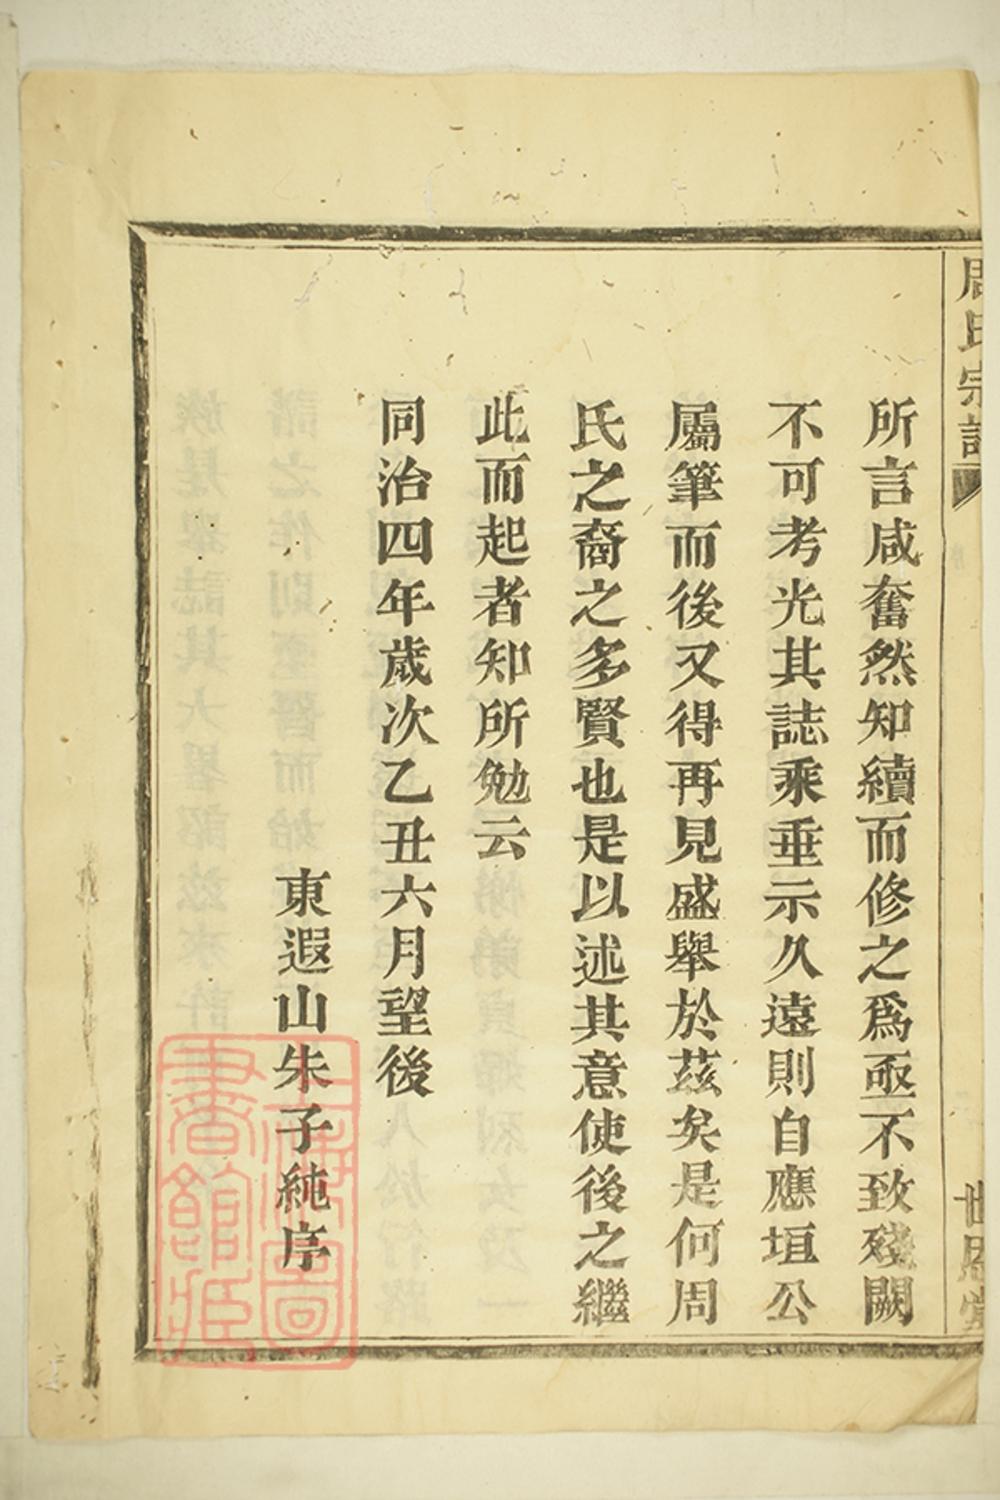 周氏宗譜
世恩堂
所言咸奮然知續而修之爲亟不致殘闕
不可考光其誌乘垂示久遠則自應垣公
屬筆而後又得再見盛舉於茲矣是何周
氏之裔之多賢也是以述其意使後之繼
此而起者知所勉云
同治四年歲次乙丑六月望後
東遐山朱子純序
上海圖
書館藏